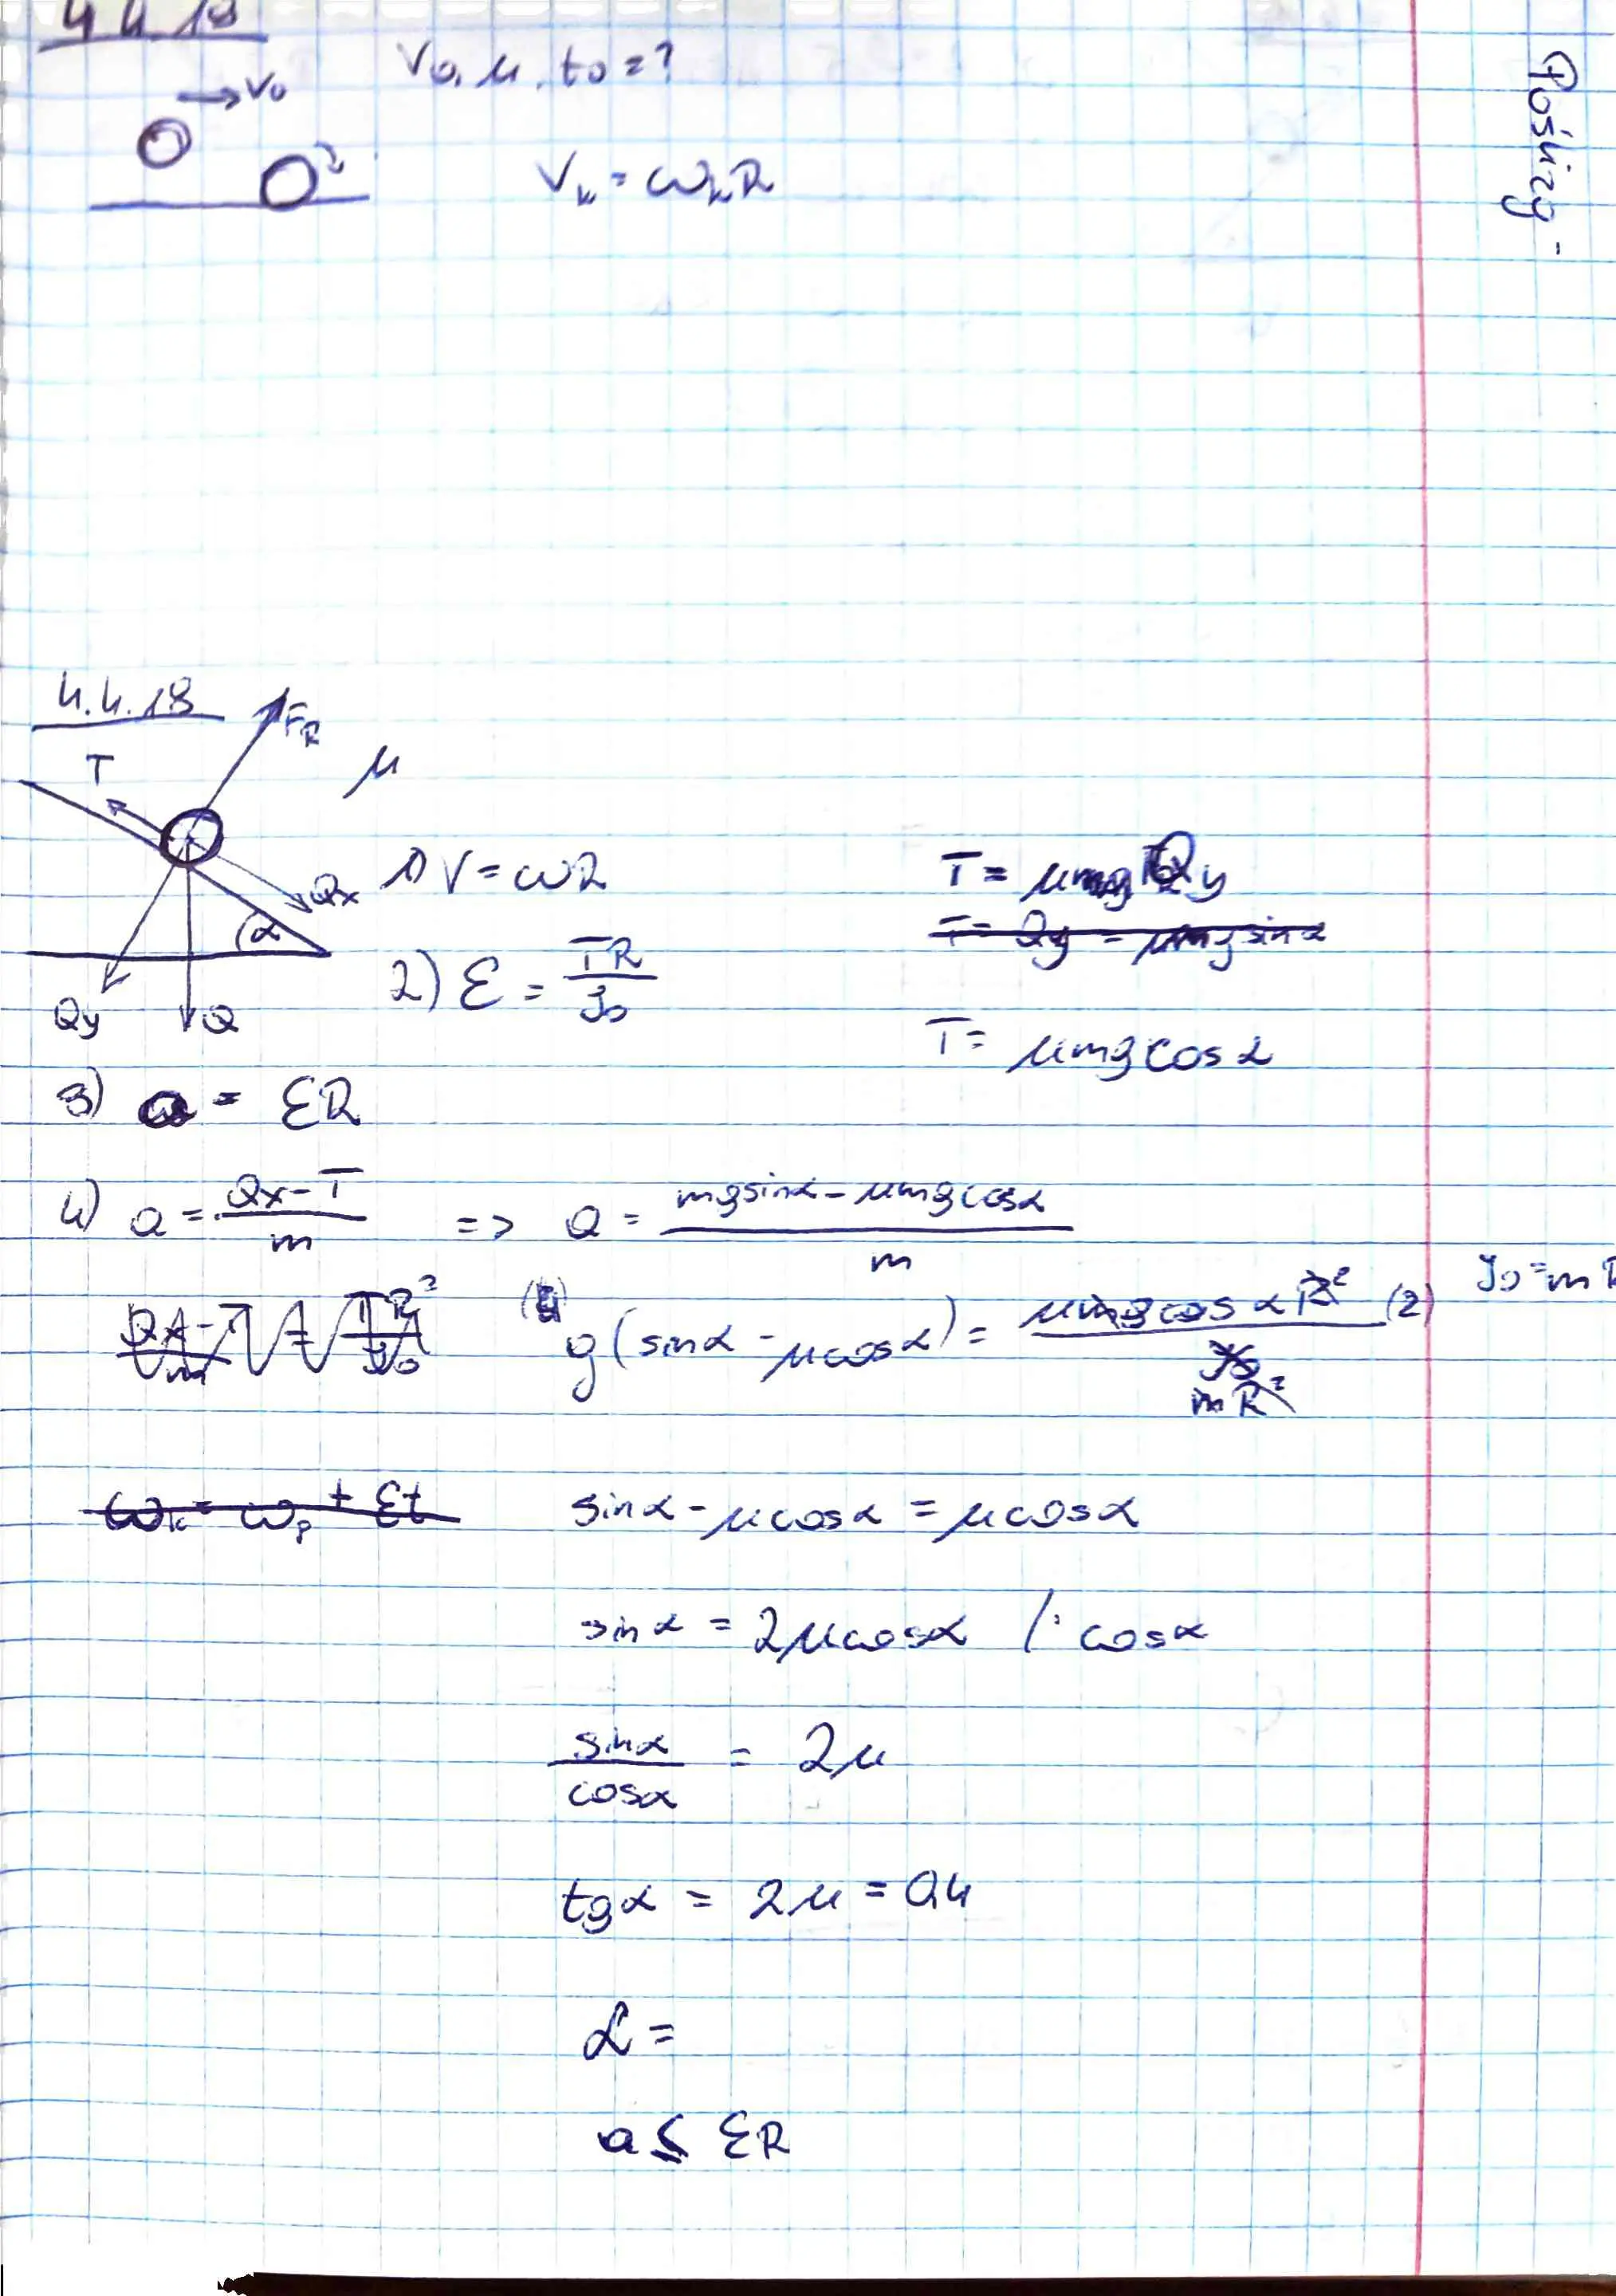 4.4.18
V₀, μ, t₀ = ?
→ V₀
Vₖ = ωₖR
Poślizg -
4.4.18
F_R
T
μ
Qx
α
Qy
Q
1) V = ωR
T = μ Qy
T = Qy = μmg sinα
2) ε = TR / J₀
T = μmg cos α
3) a = εR
4) a = (Qx - T) / m => a = (mg sinα - μmg cosα) / m
J₀ = mR
(4) g(sinα - μcosα) = μmg cos α R² / mR² (2)
ωₖ = ωₚ + εt
sinα - μcosα = μcosα
sinα = 2μcosα / : cosα
sinα / cosα = 2μ
tgα = 2μ = 0,4
α =
a ≤ εR